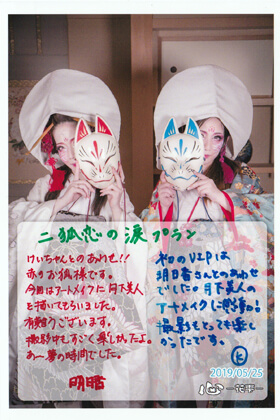 二狐恋の涙プラン
けいちゃんとのあわせ!!
赤のお狐様です。
今回はアートメイクに月下美人
を描いてもらいました。
有難うございます。
撮影もすごく楽しかったよ。
あ～夢の時間でした。
明日香
初のVIPは
明日香さんとのあわせ
でした。月下美人の
アートメイクに感動!
撮影もとっても楽し
かったです。
2019/05/25
心－花夢－